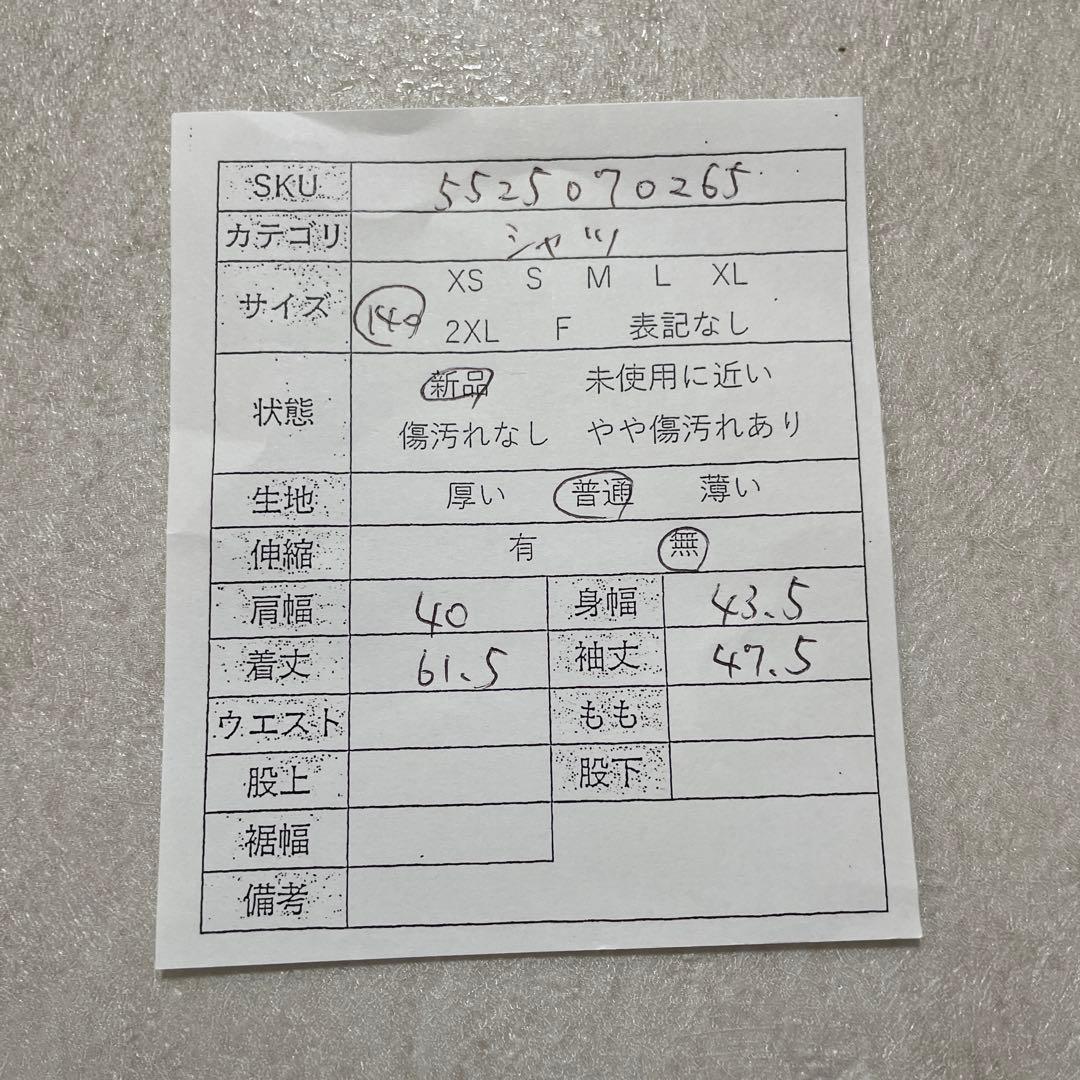 SKU 5525070265
カテゴリ シャツ
サイズ XS S M L XL
140 2XL F 表記なし
状態 新品 未使用に近い
傷汚れなし やや傷汚れあり
生地 厚い 普通 薄い
伸縮 有 無
肩幅 40 身幅 43.5
着丈 61.5 袖丈 47.5
ウエスト もも
股上 股下
裾幅
備考